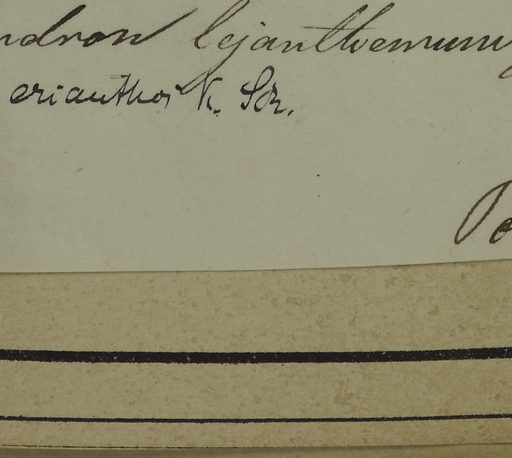 ndron lejanthemum
erianthos K. Sch.
Po